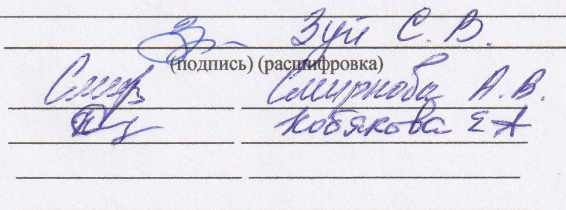 Зуй С. В.
(подпись) (расшифровка)
Смирнова А. В.
Кобякова Е А